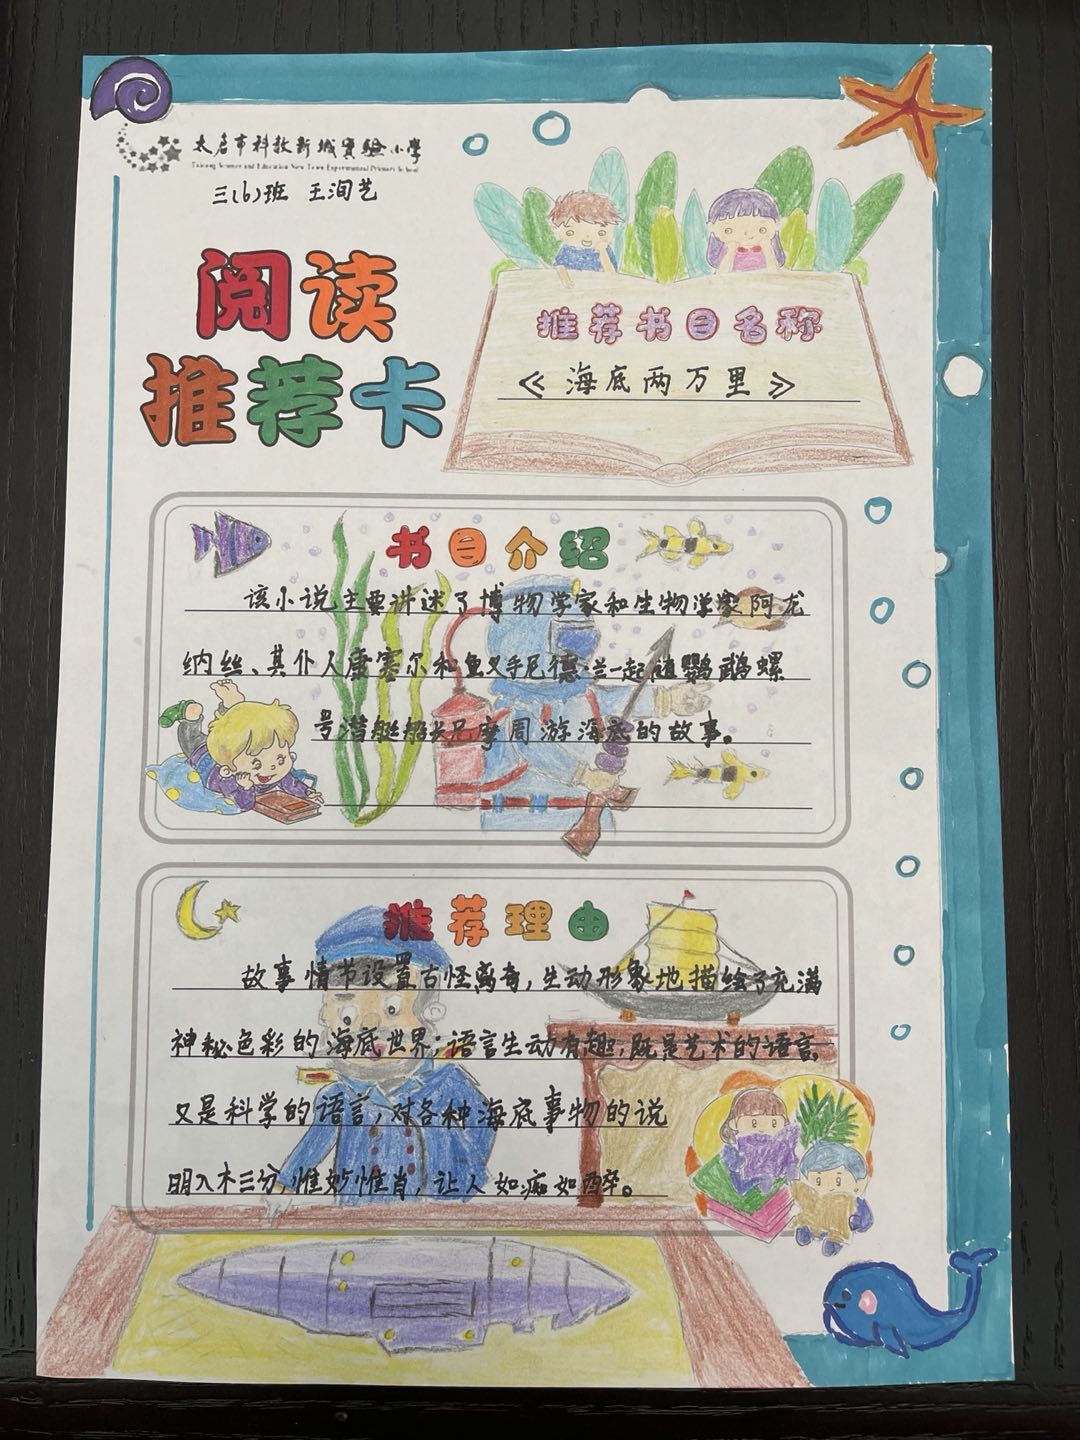 太仓市科教新城实验小学
Taicang Science and Education New Town Experimental Primary School
三(6)班 王洵艺
阅读
推荐卡
推荐书目名称
《海底两万里》
书目介绍
该小说主要讲述了博物学家和生物学家阿龙
纳丝、其仆人康塞尔和鱼叉手尼德·兰一起随鹦鹉螺
号潜艇船长尼摩周游海底的故事。
推荐理由
故事情节设置古怪离奇,生动形象地描绘了充满
神秘色彩的海底世界;语言生动有趣,既是艺术的语言,
又是科学的语言,对各种海底事物的说
明入木三分,惟妙惟肖,让人如痴如醉。